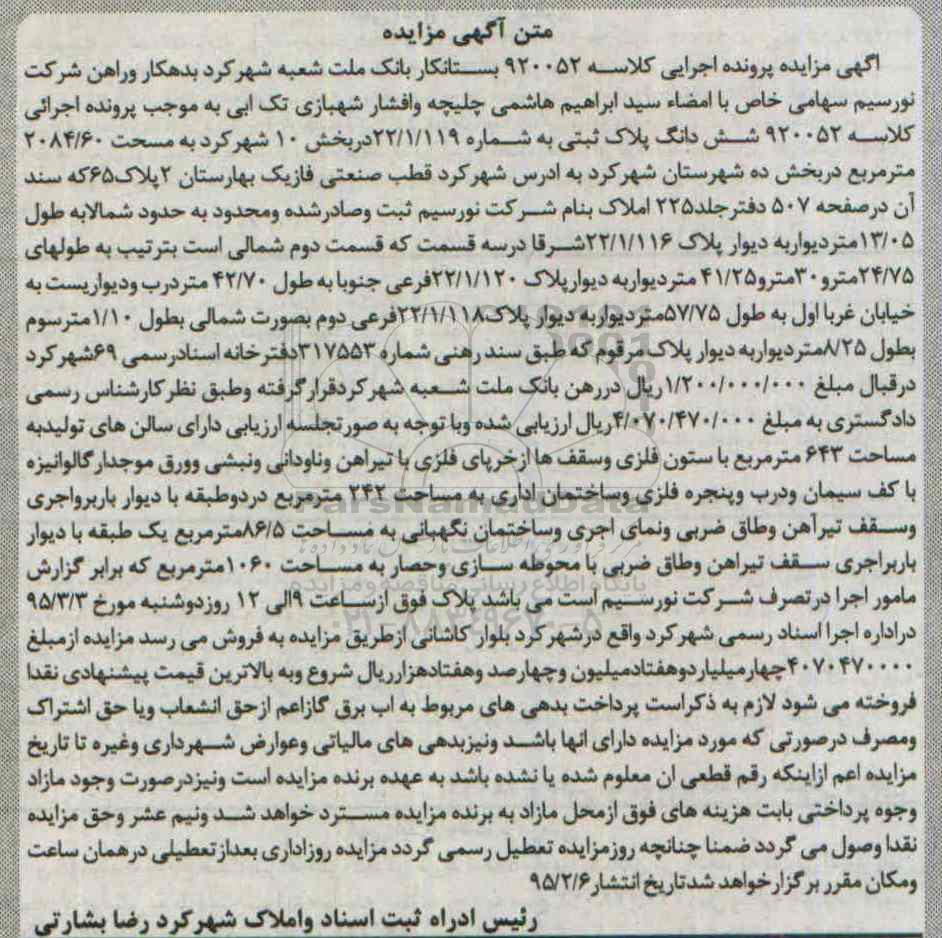 متن آگهی مزایده
اگهی مزایده پرونده اجرایی کلاسه ۹۲۰۰۵۲ بستانکار بانک ملت شعبه شهرکرد بدهکار وراهن شرکت
نورسیم سهامی خاص با امضاء سید ابراهیم هاشمی چلیچه وافشار شهبازی تک ابی به موجب پرونده اجرائی
کلاسه ۹۲۰۰۵۲ شش دانگ پلاک ثبتی به شماره ۲۲/۱/۱۱۹دربخش ۱۰ شهرکرد به مسحت ۲۰۸۴/۶۰
مترمربع دربخش ده شهرستان شهرکرد به ادرس شهرکرد قطب صنعتی فازیک بهارستان ۲پلاک۶۵که سند
آن درصفحه ۵۰۷ دفترجلد۲۲۵ املاک بنام شرکت نورسیم ثبت وصادرشده ومحدود به حدود شمالابه طول
۱۳/۰۵متردیواربه دیوار پلاک ۲۲/۱/۱۱۶شرقا درسه قسمت که قسمت دوم شمالی است بترتیب به طولهای
۲۴/۷۵مترو۳۰مترو۴۱/۲۵ متردیواربه دیوارپلاک ۲۲/۱/۱۲۰فرعی جنوبا به طول ۴۲/۷۰ متردرب ودیواریست به
خیابان غربا اول به طول ۵۷/۷۵متردیواربه دیوار پلاک۲۲/۱/۱۱۸فرعی دوم بصورت شمالی بطول ۱/۱۰مترسوم
بطول ۸/۲۵متردیواربه دیوار پلاک مرقوم که طبق سند رهنی شماره ۳۱۷۵۵۳دفترخانه اسنادرسمی ۶۹شهرکرد
درقبال مبلغ ۱/۲۰۰/۰۰۰/۰۰۰ریال دررهن بانک ملت شعبه شهرکردقرارگرفته وطبق نظرکارشناس رسمی
دادگستری به مبلغ ۴/۰۷۰/۴۷۰/۰۰۰ریال ارزیابی شده وبا توجه به صورتجلسه ارزیابی دارای سالن های تولیدبه
مساحت ۶۴۳ مترمربع با ستون فلزی وسقف ها ازخرپای فلزی با تیراهن وناودانی ونبشی وورق موجدارگالوانیزه
با کف سیمان ودرب وپنجره فلزی وساختمان اداری به مساحت ۲۴۲ مترمربع دردوطبقه با دیوار باربرواجری
وسقف تیرآهن وطاق ضربی ونمای اجری وساختمان نگهبانی به مساحت ۸۶/۵مترمربع یک طبقه با دیوار
باربراجری سقف تیراهن وطاق ضربی با محوطه سازی وحصار به مساحت ۱۰۶۰مترمربع که برابر گزارش
مامور اجرا درتصرف شرکت نورسیم است می باشد پلاک فوق ازساعت ۹الی ۱۲ روزدوشنبه مورخ ۹۵/۳/۳
دراداره اجرا اسناد رسمی شهرکرد واقع درشهرکرد بلوار کاشانی ازطریق مزایده به فروش می رسد مزایده ازمبلغ
۴۰۷۰۴۷۰۰۰۰چهارمیلیاردوهفتادمیلیون وچهارصد وهفتادهزارریال شروع وبه بالاترین قیمت پیشنهادی نقدا
فروخته می شود لازم به ذکراست پرداخت بدهی های مربوط به اب برق گازاعم ازحق انشعاب ویا حق اشتراک
ومصرف درصورتی که مورد مزایده دارای انها باشد ونیزبدهی های مالیاتی وعوارض شهرداری وغیره تا تاریخ
مزایده اعم ازاینکه رقم قطعی ان معلوم شده یا نشده باشد به عهده برنده مزایده است ونیزدرصورت وجود مازاد
وجوه پرداختی بابت هزینه های فوق ازمحل مازاد به برنده مزایده مسترد خواهد شد ونیم عشر وحق مزایده
نقدا وصول می گردد ضمنا چنانچه روزمزایده تعطیل رسمی گردد مزایده روزاداری بعدازتعطیلی درهمان ساعت
ومکان مقرر برگزارخواهد شدتاریخ انتشار۹۵/۲/۶
رئیس ادراه ثبت اسناد واملاک شهرکرد رضا بشارتی
ParsNamadData
پایگاه اطلاع رسانی مناقصه و مزایده